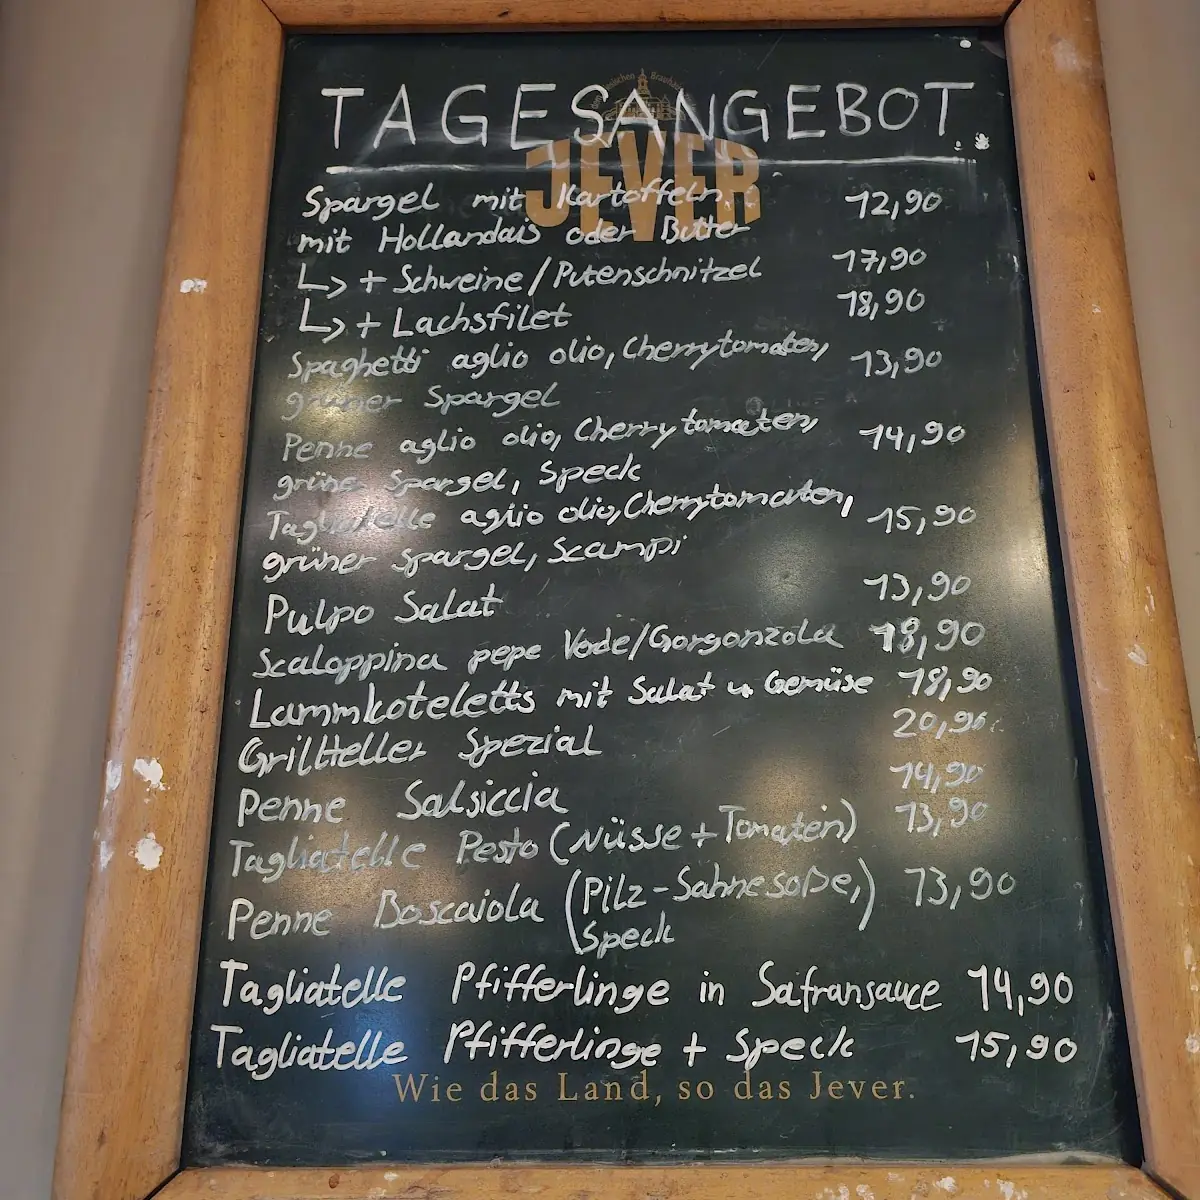 TAGESANGEBOT
JEVER
Spargel mit Kartoffeln 12,90
mit Hollandais oder Butter
↳ + Schweine/Putenschnitzel 17,90
↳ + Lachsfilet 18,90
Spaghetti aglio olio, Cherrytomaten, 13,90
grüner Spargel
Penne aglio olio, Cherrytomaten, 14,90
grüne Spargel, Speck
Tagliatelle aglio olio, Cherrytomaten, 15,90
grüner Spargel, Scampi
Pulpo Salat 13,90
Scaloppina pepe Verde/Gorgonzola 18,90
Lammkoteletts mit Salat u Gemüse 18,90
Grillteller Spezial 20,90
Penne Salsiccia 14,90
Tagliatelle Pesto (Nüsse + Tomaten) 13,90
Penne Boscaiola (Pilz-Sahnesoße, 13,90
Speck)
Tagliatelle Pfifferlinge in Safransauce 14,90
Tagliatelle Pfifferlinge + Speck 15,90
Wie das Land, so das Jever.